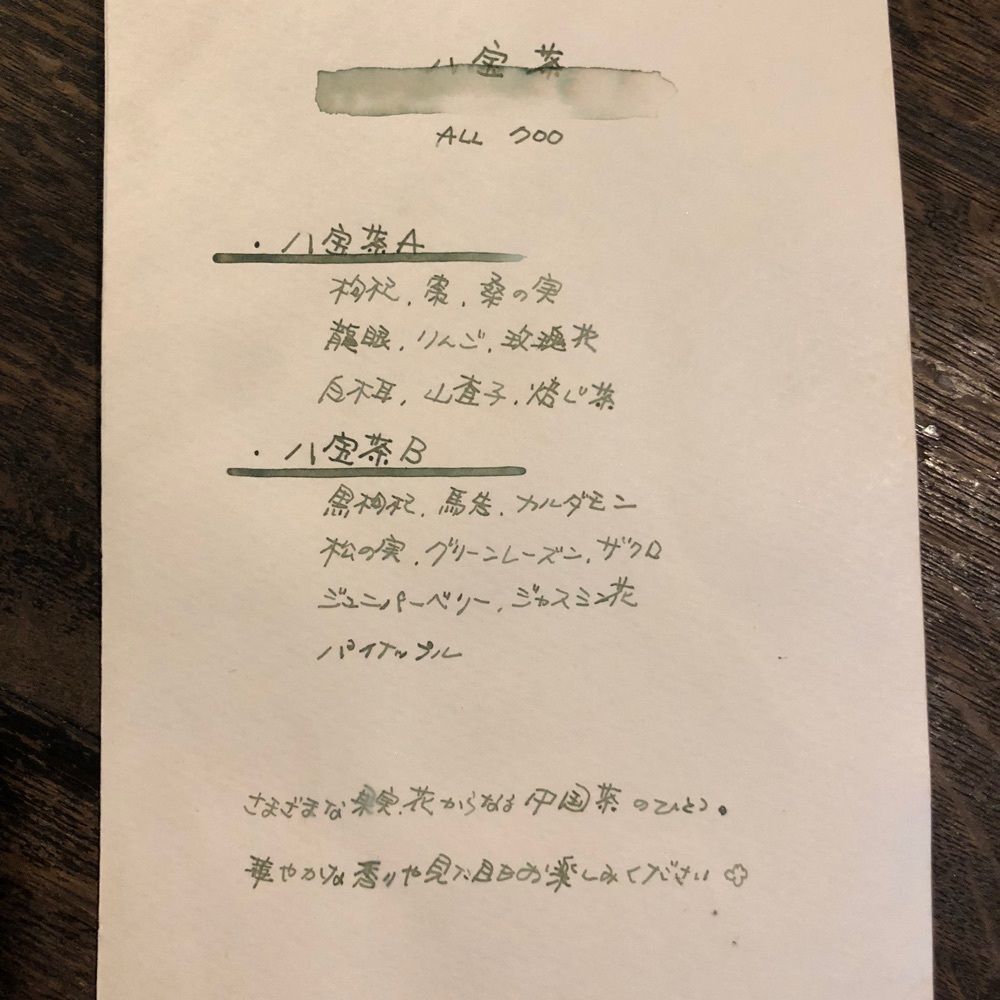 八宝茶
ALL 700
・八宝茶A
枸杞、棗、桑の実
龍眼、りんご、玫瑰花
白木耳、山査子、焙じ茶
・八宝茶B
黒枸杞、馬告、カルダモン
松の実、グリーンレーズン、ザクロ
ジュニパーベリー、ジャスミン花
パイナップル
さまざまな果実、花からなる中国茶のひとつ。
華やかな香りや見た目もお楽しみください